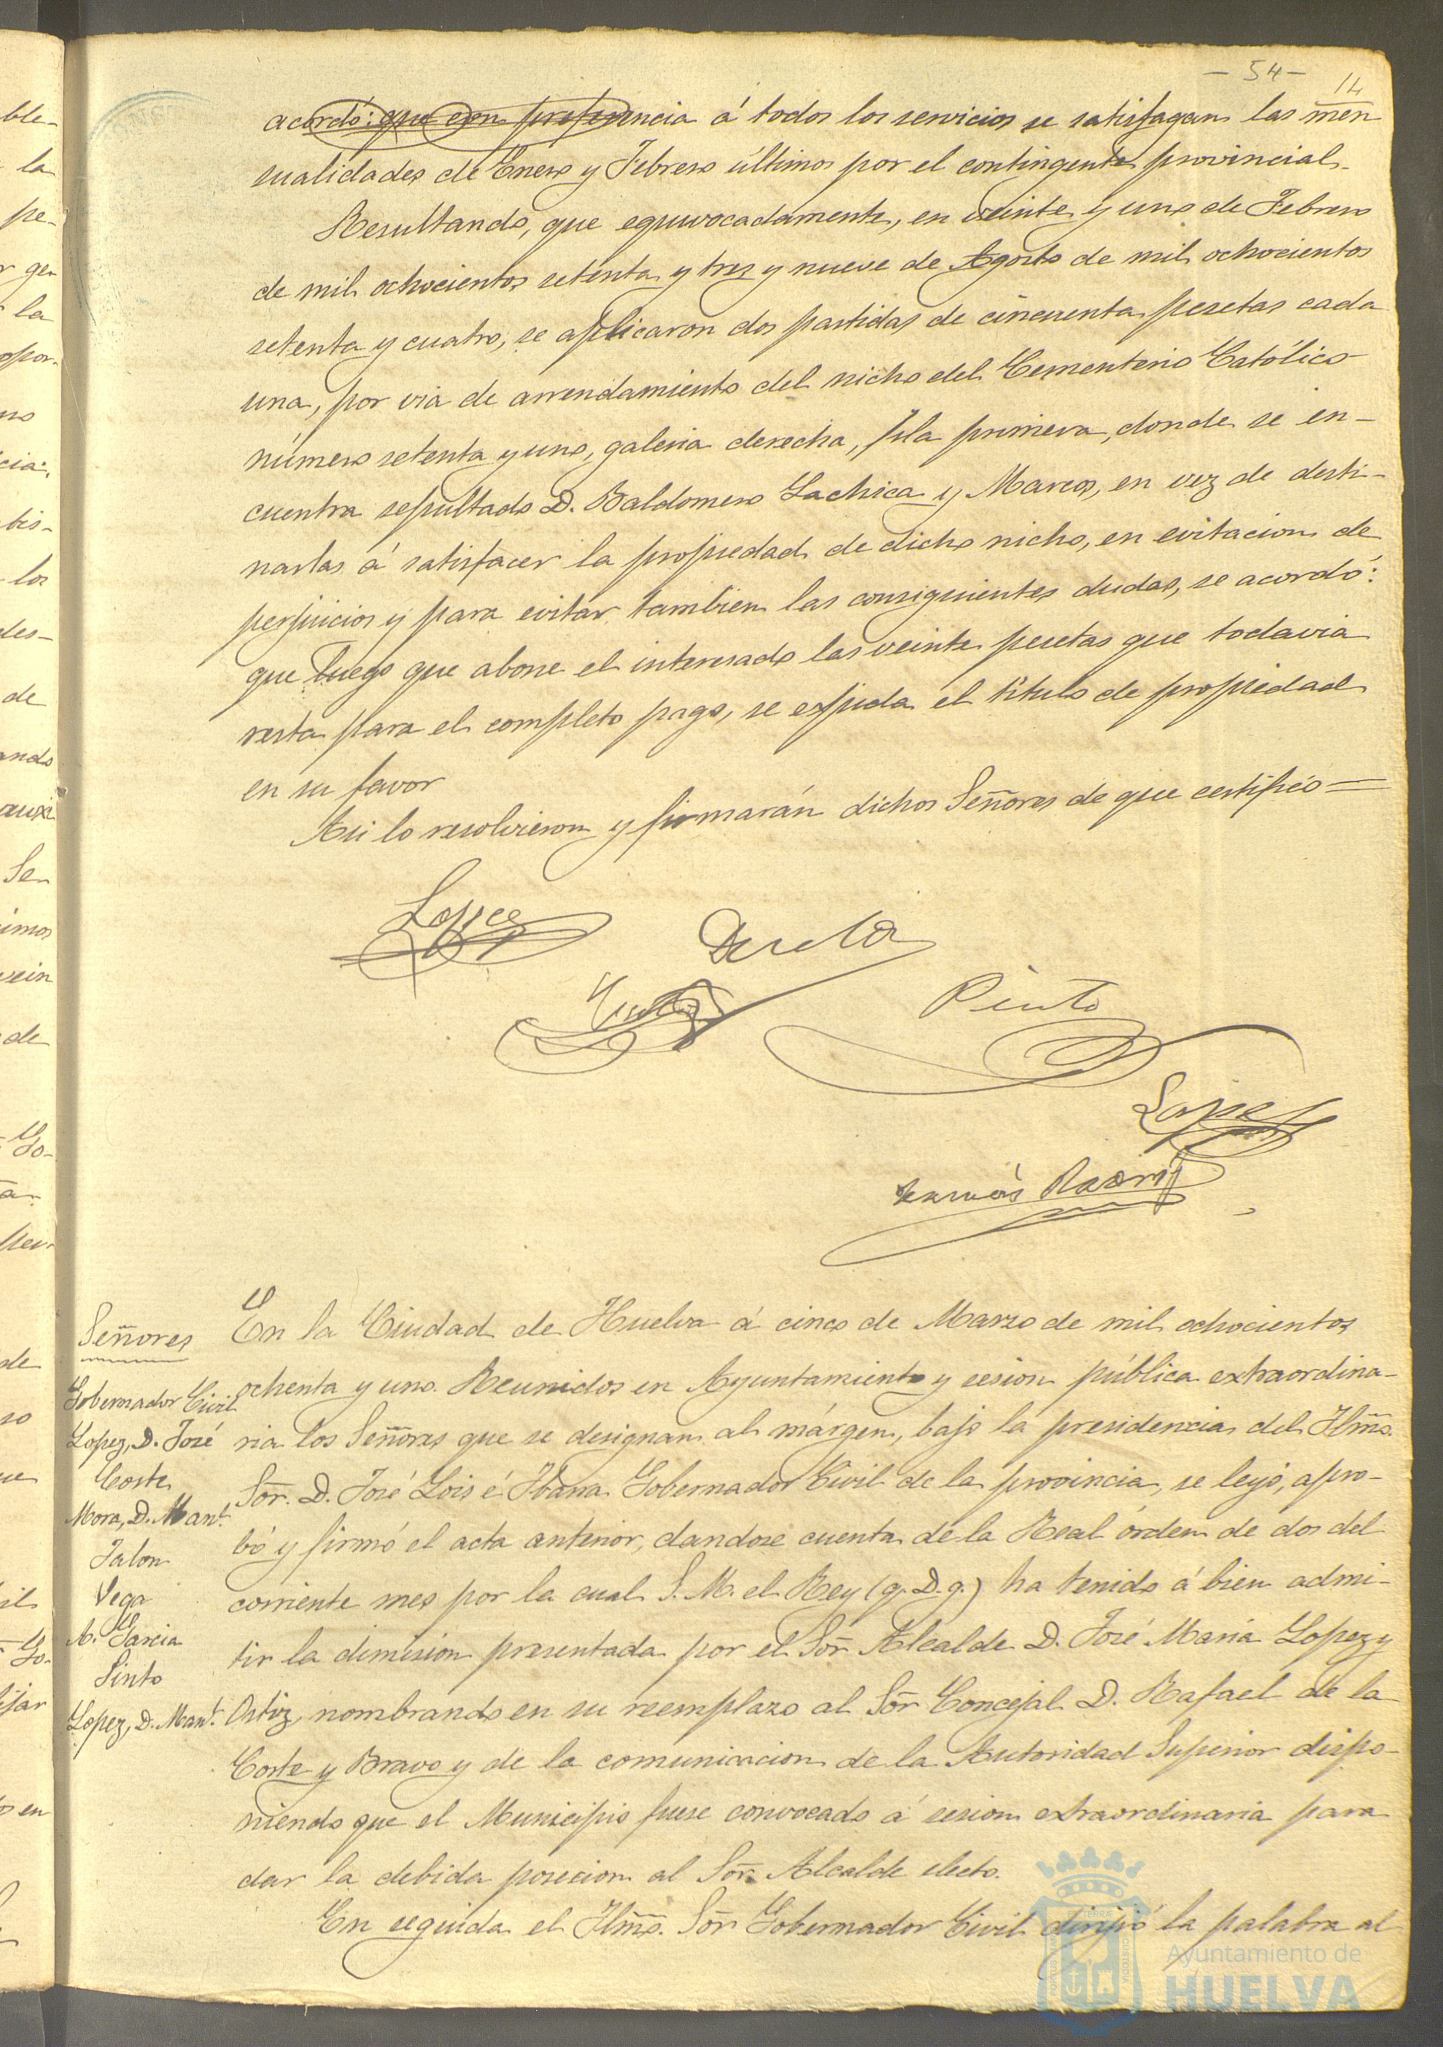 - 54 -
14
acordó: que con preferencia á todos los servicios se satisfagan las men
sualidades de Enero y Febrero últimos por el contingente provincial.
Resultando, que equivocadamente, en veinte y uno de Febrero
de mil ochocientos setenta y tres y nueve de Agosto de mil ochocientos
setenta y cuatro, se aplicaron dos partidas de cincuenta pesetas cada
una, por via de arrendamiento del nicho del Cementerio Católico
número setenta y uno, galeria derecha, fila primera, donde se en-
cuentra sepultado D. Baldomero Lachica y Marcos, en vez de desti-
narlas á satisfacer la propiedad de dicho nicho, en evitacion de
perjuicios y para evitar tambien las consiguientes dudas, se acordó:
que luego que abone el interesado las veinte pesetas que todavia
resta para el completo pago, se espida el título de propiedad
en su favor
Asi lo resolvieron y firmarán dichos Señores de que certifico=
Lopez
Pinto
Lopez
Señores
Gobernador Civil
Lopez, D. José
Corte
Mora, D. Manl.
Jalon
Vega
A. Garcia
Pinto
Lopez, D. Manl.
En la Ciudad de Huelva á cinco de Marzo de mil ochocientos
ochenta y uno. Reunidos en Ayuntamiento y sesion pública extraordina-
ria los Señores que se designan al márgen, bajo la presidencia del Iltmo.
Sor. D. José Lois é Ibarra Gobernador Civil de la provincia, se leyó, apro-
bó y firmó el acta anterior, dandose cuenta de la Real órden de dos del
corriente mes por la cual S. M. el Rey (q. D. g.) ha tenido á bien admi-
tir la dimision presentada por el Sor Alcalde D. José Maria Lopez y
Ortiz, nombrando en su reemplazo al Sor Concejal D. Rafael de la
Corte y Bravo y de la comunicacion de la Autoridad Superior dispo-
niendo que el Municipio fuese convocado á sesion extraordinaria para
dar la debida posecion al Sor. Alcalde electo.
En seguida el Iltmo. Sor Gobernador Civil dirijió la palabra al
Ayuntamiento de
HUELVA